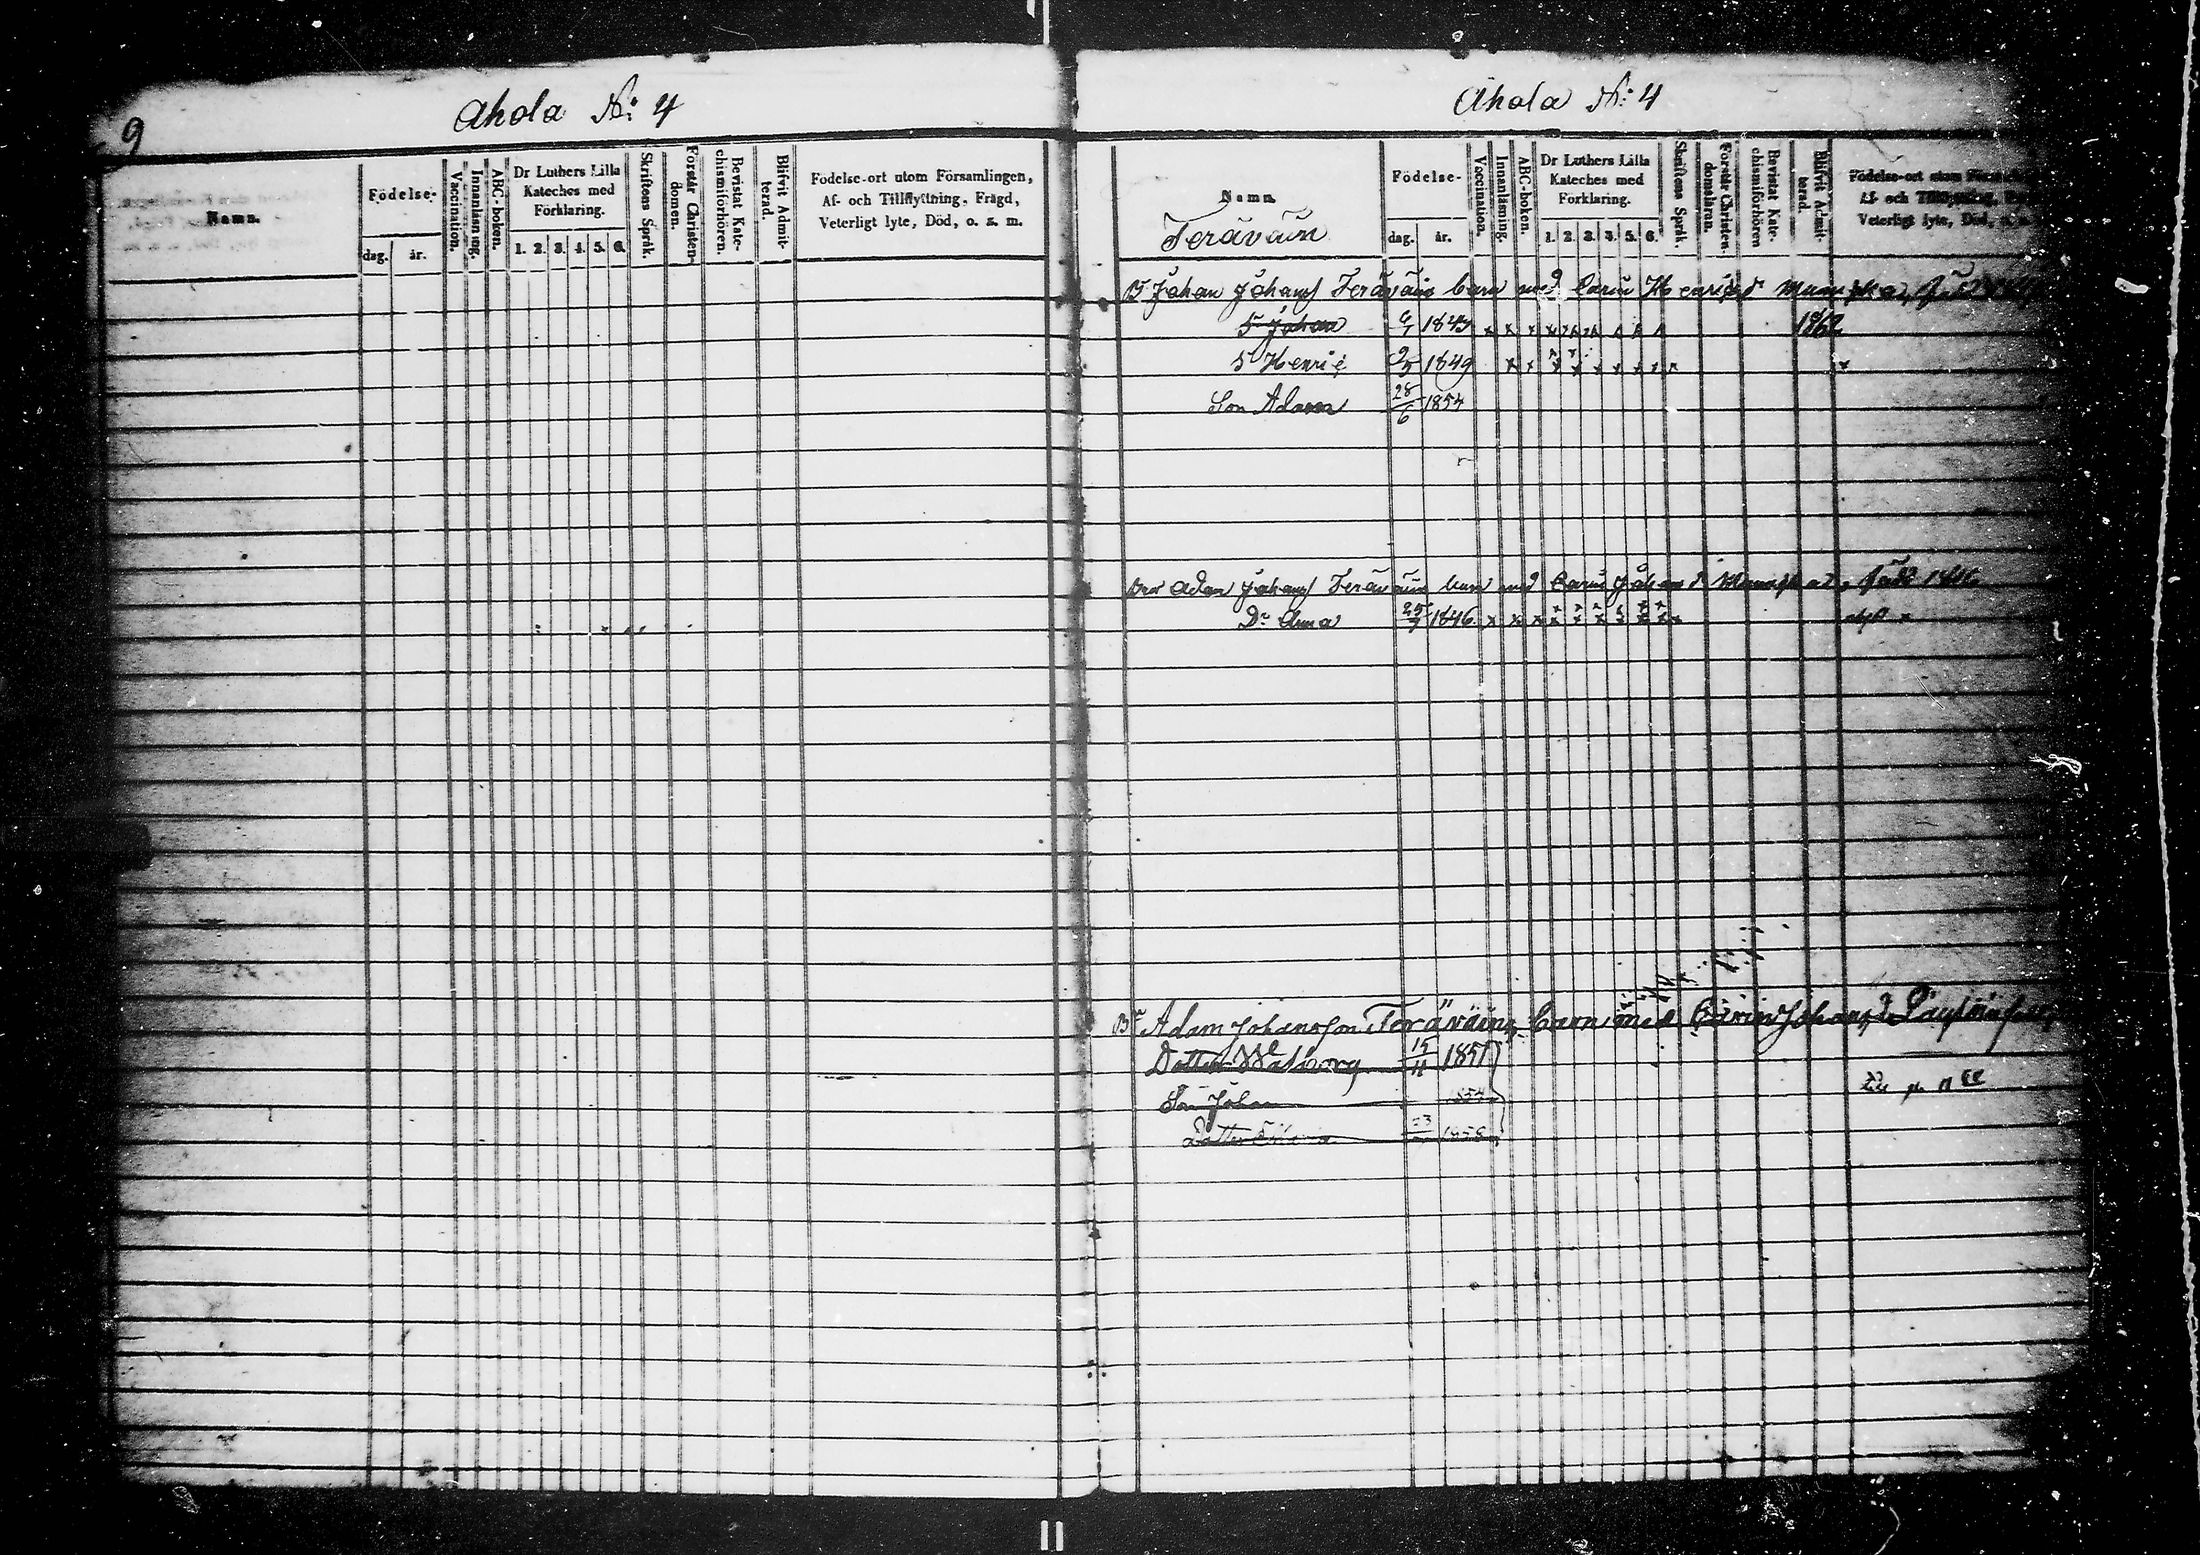 9
Ahola No: 4
Namn.
Födelse-
dag. år.
Vaccination.
Innanläsning.
ABC-boken.
Dr Luthers Lilla
Kateches med
Förklaring.
1. 2. 3. 4. 5. 6.
Skriftens Språk.
Förstår Christen-
domen.
Bevistat Kate-
chismiförhören.
Blifvit Admit-
terad.
Födelse-ort utom Församlingen,
Af- och Tillflyttning, Frägd,
Veterligt lyte, Död, o. s. m.
Ahola No: 4
Namn.
Teräväin
Födelse-
dag. år.
Voccination.
Innanläsning.
ABC-boken.
Dr Luthers Lilla
Kateches med
Förklaring.
1. 2. 3. 4. 5. 6.
Skriftens Språk.
Förstår Christen-
domsläran.
Bevistat Kate-
chismiförhören
Blifvit Admit-
terad.
Födelse-ort utom
Af- och Tillflyttning,
Veterligt lyte, Död,
Johan Johans Teräväin barn med Carin Henricsd
S Johan 6/1 1843 1862
S Henric 9/3 1849
Son Adam 28/6 1854
Adam Johans Teräväin barn med Carin Johansd
Dr Anna 25/7 1846
Br Adam Johansson Teräväin barn med Carin Johansd
Dotter Walborg 15/11 1851
Son Johan 1854
Dotter 1858